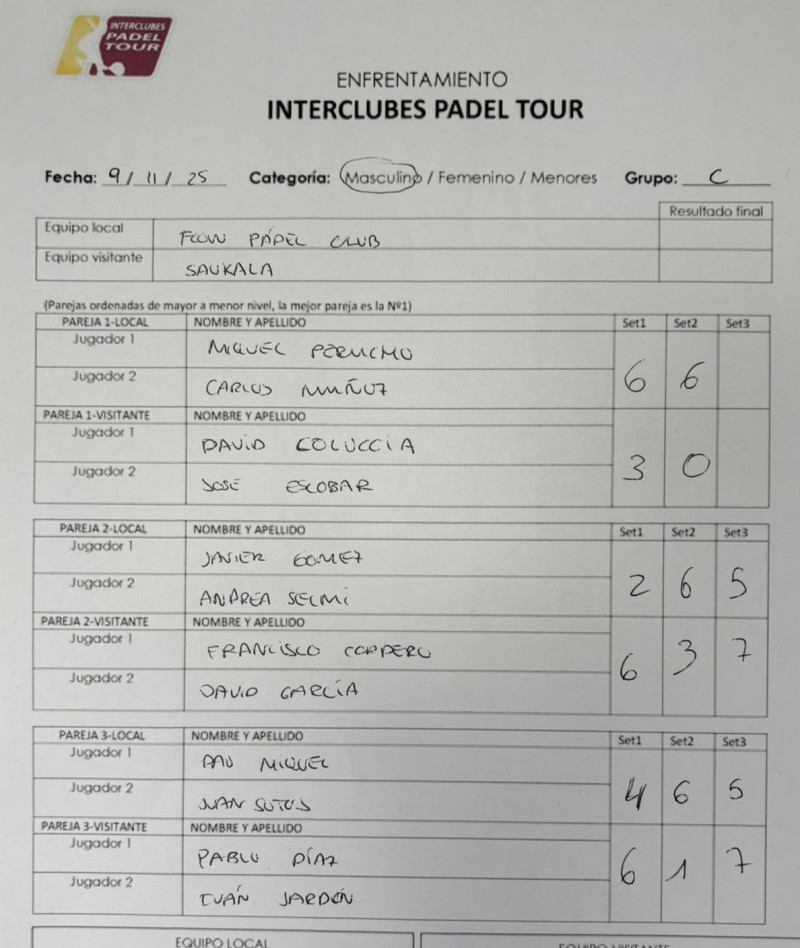 INTERCLUBES
PADEL
TOUR
ENFRENTAMIENTO
INTERCLUBES PADEL TOUR
Fecha: 9/11/25 Categoría: Masculino / Femenino / Menores Grupo: C
Resultado final
Equipo local FLOW PÁDEL CLUB
Equipo visitante SAUKALA
(Parejas ordenadas de mayor a menor nivel, la mejor pareja es la Nº1)
PAREJA 1-LOCAL NOMBRE Y APELLIDO Set1 Set2 Set3
Jugador 1 MIQUEL PERUCHO
Jugador 2 CARLOS MUÑOZ
6 6
PAREJA 1-VISITANTE NOMBRE Y APELLIDO
Jugador 1 DAVID COLUCCIA
Jugador 2 JOSE ESCOBAR
3 0
PAREJA 2-LOCAL NOMBRE Y APELLIDO Set1 Set2 Set3
Jugador 1 JAVIER GOMEZ
Jugador 2 ANDREA SELMI
2 6 5
PAREJA 2-VISITANTE NOMBRE Y APELLIDO
Jugador 1 FRANCISCO CORDERO
Jugador 2 DAVID GARCÍA
6 3 7
PAREJA 3-LOCAL NOMBRE Y APELLIDO Set1 Set2 Set3
Jugador 1 PAU MIQUEL
Jugador 2 JUAN SOTOS
4 6 5
PAREJA 3-VISITANTE NOMBRE Y APELLIDO
Jugador 1 PABLO DÍAZ
Jugador 2 IVÁN JARDÓN
6 1 7
EQUIPO LOCAL EQUIPO VISITANTE